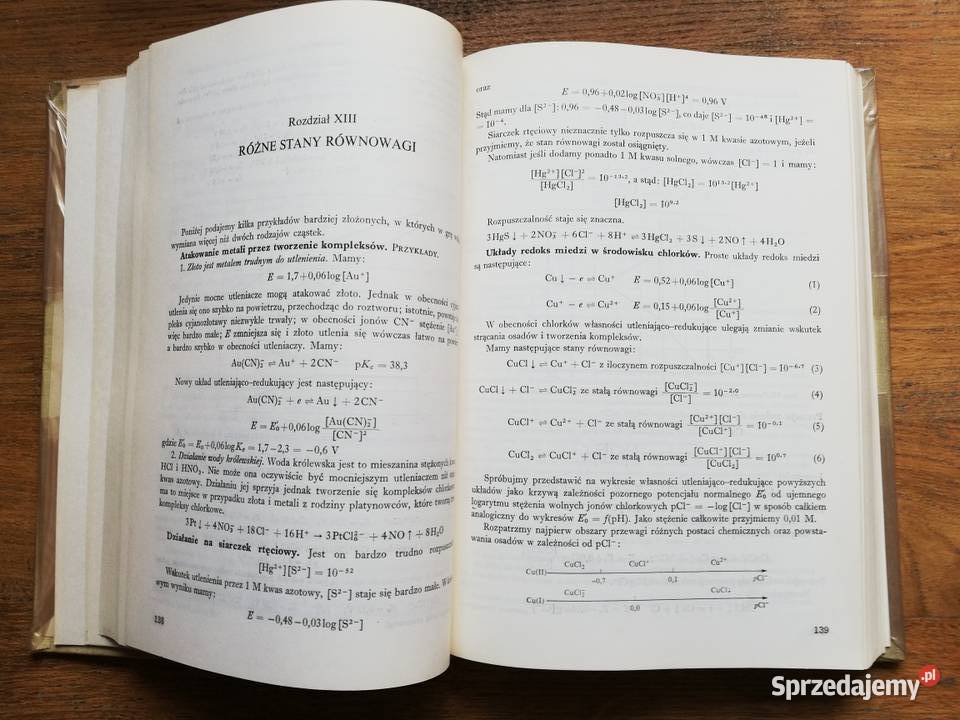 Rozdział XIII
RÓŻNE STANY RÓWNOWAGI
Poniżej podajemy kilka przykładów bardziej złożonych, w których w grę
wymiana więcej niż dwóch rodzajów cząstek.
Atakowanie metali przez tworzenie kompleksów. PRZYKŁADY.
1. Złoto jest metalem trudnym do utlenienia. Mamy:
E = 1,7+0,06log[Au⁺]
Jedynie mocne utleniacze mogą atakować złoto. Jednak w obecności
utlenia się ono szybko na powietrzu, przechodząc do roztworu; istotnie,
pleks cyjanozłotawy niezwykle trwały; w obecności jonów CN⁻ stężenie
więc bardzo małe; E zmniejsza się i złoto utlenia się wówczas łatwo na
a bardzo szybko w obecności utleniaczy. Mamy:
Au(CN)₂⁻ ⇌ Au⁺ + 2CN⁻ pKc = 38,3
Nowy układ utleniająco-redukujący jest następujący:
Au(CN)₂⁻ + e ⇌ Au ↓ + 2CN⁻
E = E₀′+0,06log [Au(CN)₂⁻]/[CN⁻]²
gdzie E₀′ = E₀+0,06logKc = 1,7−2,3 = −0,6 V
2. Działanie wody królewskiej. Woda królewska jest to mieszanina stężonych
HCl i HNO₃. Nie może ona oczywiście być mocniejszym utleniaczem niż
kwas azotowy. Działaniu jej sprzyja jednak tworzenie się kompleksów
ma to miejsce w przypadku złota i metali z rodziny platynowców, które tworzą
kompleksy chlorkowe.
3Pt↓+4NO₃⁻+18Cl⁻+16H⁺ → 3PtCl₆²⁻+4NO↑+8H₂O
Działanie na siarczek rtęciowy. Jest on bardzo trudno
[Hg²⁺][S²⁻] = 10⁻⁵²
Wskutek utlenienia przez 1 M kwas azotowy, [S²⁻] staje się bardzo małe.
wym wyniku mamy:
E = −0,48−0,03log[S²⁻]
138
oraz
E = 0,96+0,02log[NO₃⁻][H⁺]⁴ = 0,96 V
Stąd mamy dla [S²⁻]: 0,96 = −0,48−0,03log[S²⁻], co daje [S²⁻] = 10⁻⁴⁸ i [Hg²⁺] =
= 10⁻⁴.
Siarczek rtęciowy nieznacznie tylko rozpuszcza się w 1 M kwasie azotowym, jeżeli
przyjmiemy, że stan równowagi został osiągnięty.
Natomiast jeśli dodamy ponadto 1 M kwasu solnego, wówczas [Cl⁻] = 1 i mamy:
[Hg²⁺][Cl⁻]²/[HgCl₂] = 10⁻¹³·², a stąd: [HgCl₂] = 10¹³·²[Hg²⁺]
[HgCl₂] = 10⁹·²
Rozpuszczalność staje się znaczna.
3HgS↓+2NO₃⁻+6Cl⁻+8H⁺ ⇌ 3HgCl₂+3S↓+2NO↑+4H₂O
Układy redoks miedzi w środowisku chlorków. Proste układy redoks miedzi
są następujące:
Cu↓ − e ⇌ Cu⁺ E = 0,52+0,06log[Cu⁺] (1)
Cu⁺ − e ⇌ Cu²⁺ E = 0,15+0,06log [Cu²⁺]/[Cu⁺] (2)
W obecności chlorków własności utleniająco-redukujące ulegają zmianie wskutek
strącania osadów i tworzenia kompleksów.
Mamy następujące stany równowagi:
CuCl↓ ⇌ Cu⁺ + Cl⁻ z iloczynem rozpuszczalności [Cu⁺][Cl⁻] = 10⁻⁶·⁷ (3)
CuCl↓ + Cl⁻ ⇌ CuCl₂⁻ ze stałą równowagi [CuCl₂⁻]/[Cl⁻] = 10⁻²·⁰ (4)
CuCl⁺ ⇌ Cu²⁺ + Cl⁻ ze stałą równowagi [Cu²⁺][Cl⁻]/[CuCl⁺] = 10⁻⁰·¹ (5)
CuCl₂ ⇌ CuCl⁺ + Cl⁻ ze stałą równowagi [CuCl⁺][Cl⁻]/[CuCl₂] = 10⁰·⁷ (6)
Spróbujmy przedstawić na wykresie własności utleniająco-redukujące powyższych
układów jako krzywą zależności pozornego potencjału normalnego E₀′ od ujemnego
logarytmu stężenia wolnych jonów chlorkowych pCl⁻ = −log[Cl⁻] w sposób całkiem
analogiczny do wykresów E₀′ = f(pH). Jako stężenie całkowite przyjmiemy 0,01 M.
Rozpatrzmy najpierw obszary przewagi różnych postaci chemicznych oraz powsta-
wania osadów w zależności od pCl⁻:
CuCl₂ CuCl⁺ Cu²⁺
Cu(II) −0,7 0,1 pCl⁻
CuCl₂⁻ CuCl↓
Cu(I) 0,0 pCl⁻
139
Sprzedajemy.pl